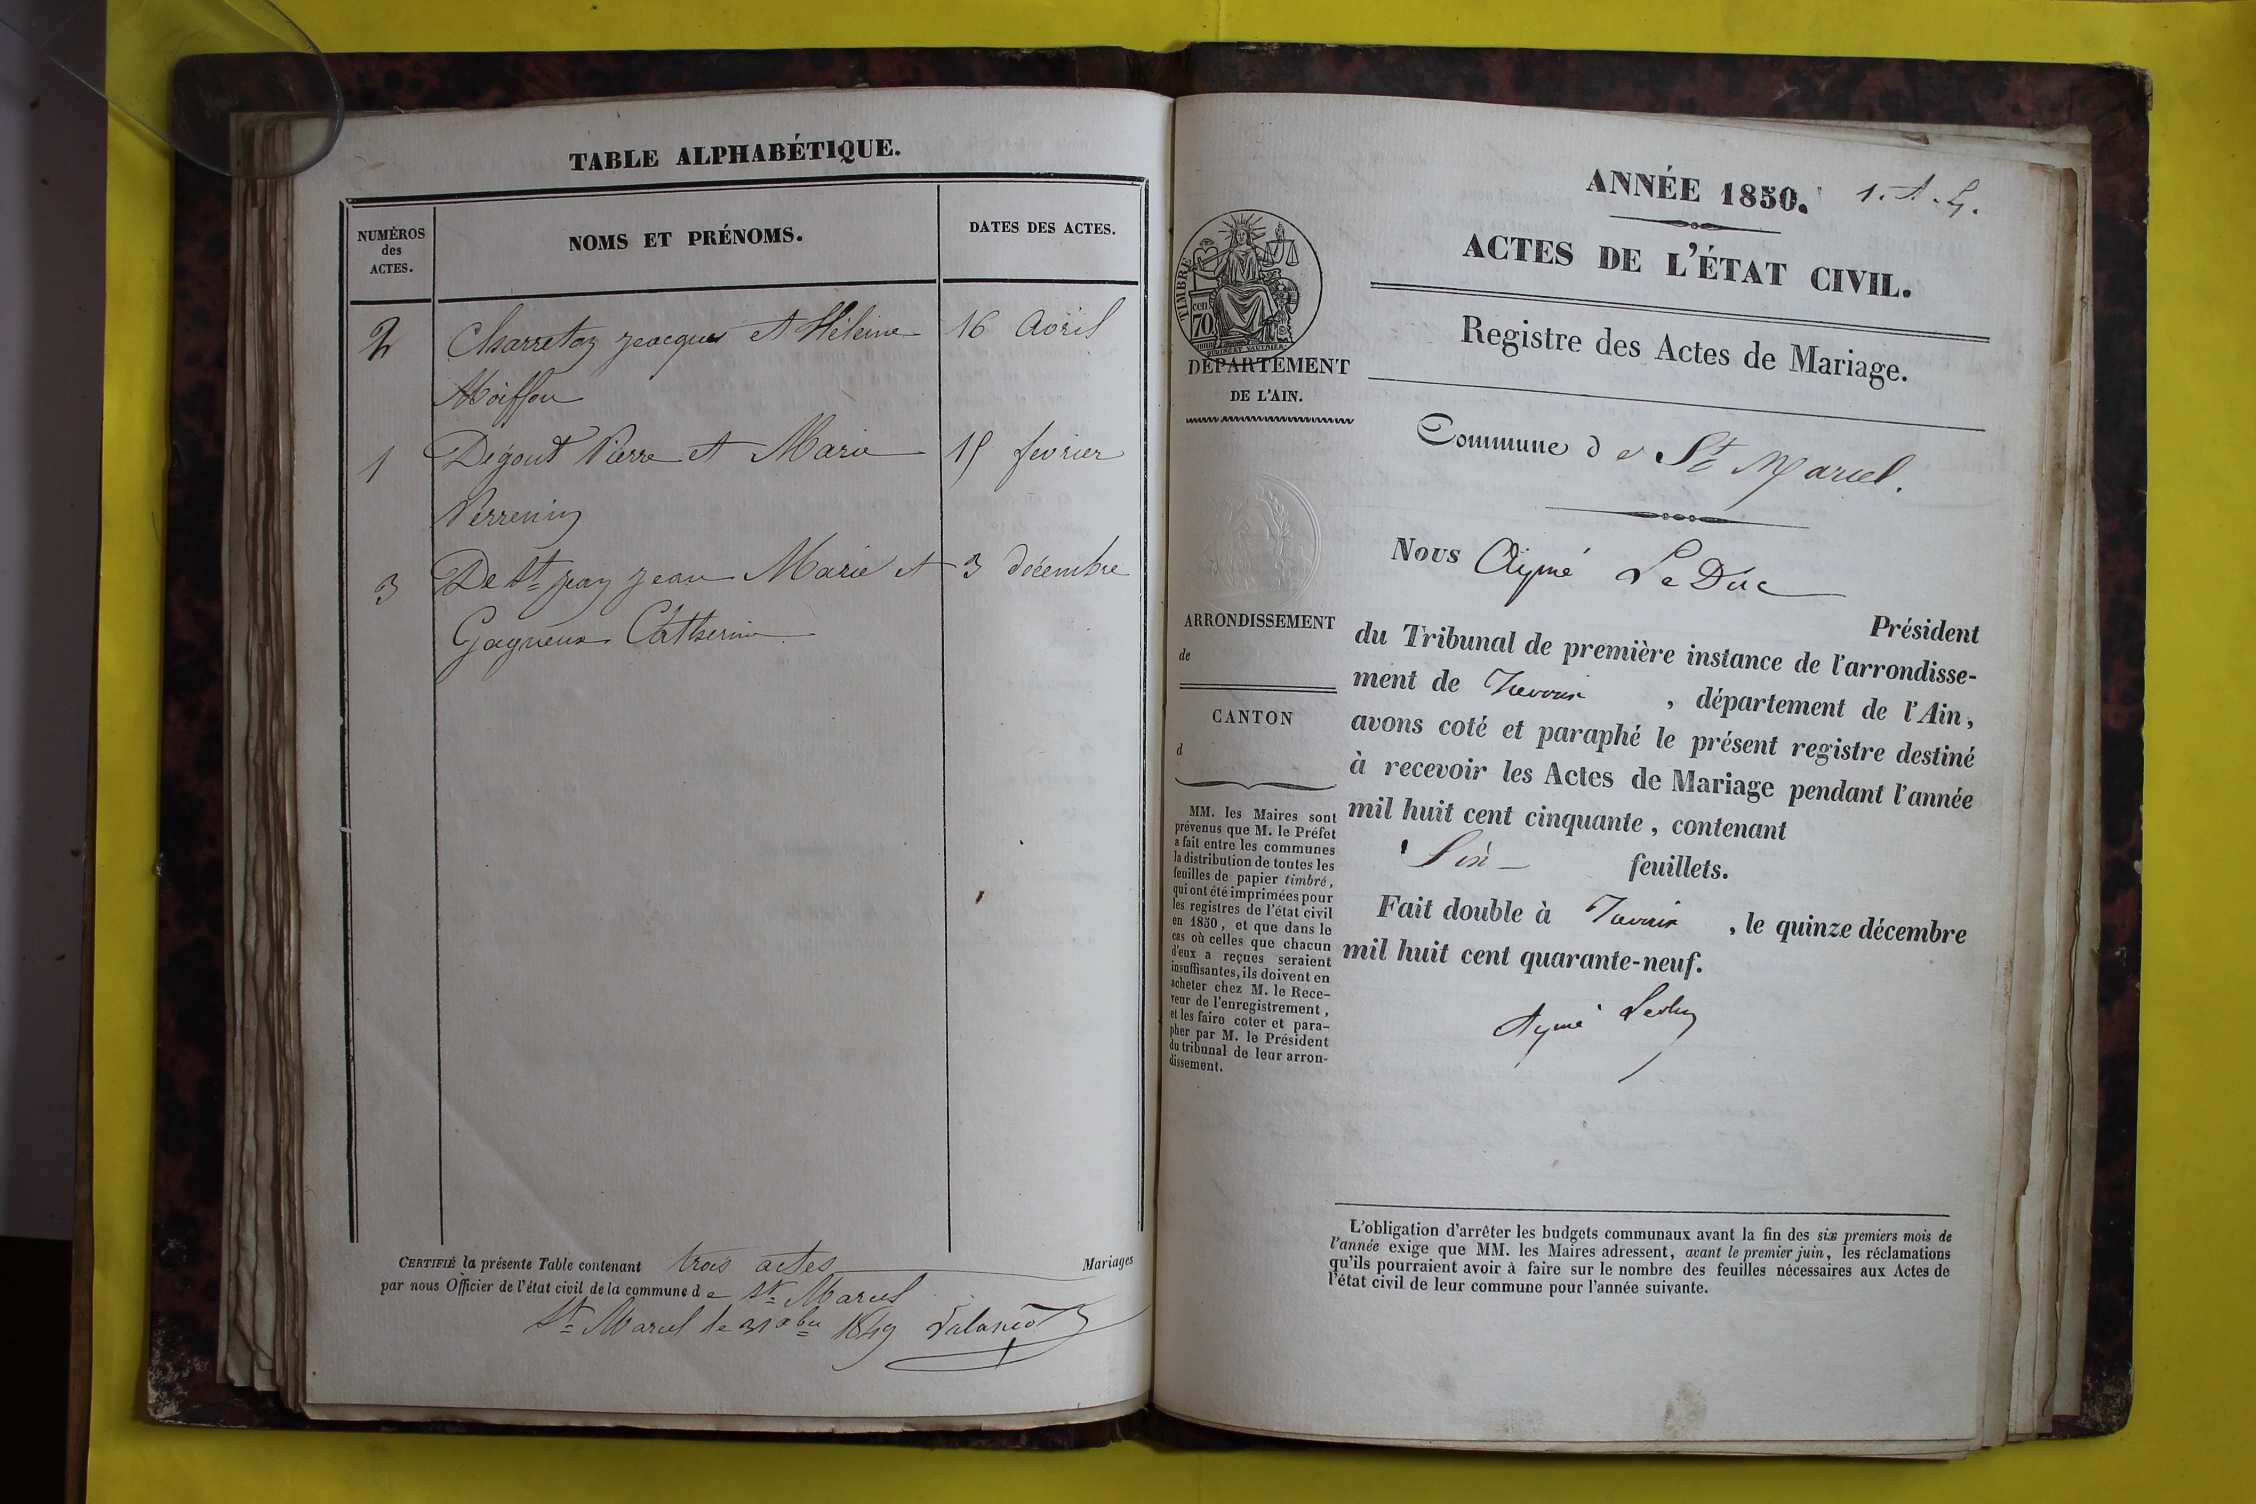 TABLE ALPHABÉTIQUE.
NUMÉROS
des
ACTES.
NOMS ET PRÉNOMS.
DATES DES ACTES.
2 Charreton jacques et Héleine 16 Avril
Moiffon
1 Dégout Pierre et Marie 15 fevrier
Perrenin
3 De St jean jean Marie et 3 décembre
Gagneux Catherine
CERTIFIÉ la présente Table contenant trois actes Mariages
par nous Officier de l'état civil de la commune de St Marcel
St Marcel le 31 xbre 1849
ANNÉE 1850. 1.
ACTES DE L'ÉTAT CIVIL.
Registre des Actes de Mariage.
TIMBRE
70
DÉPARTEMENT
DE L'AIN.
Commune de St Marcel.
Nous Aymé Le Duc
Président
du Tribunal de première instance de l'arrondisse-
ment de Trevoux, département de l'Ain,
avons coté et paraphé le présent registre destiné
à recevoir les Actes de Mariage pendant l'année
mil huit cent cinquante, contenant
Six feuillets.
Fait double à Trevoux, le quinze décembre
mil huit cent quarante-neuf.
Aymé Leduc
ARRONDISSEMENT
de
CANTON
d
MM. les Maires sont
prévenus que M. le Préfet
a fait entre les communes
la distribution de toutes les
feuilles de papier timbré,
qui ont été imprimées pour
les registres de l'état civil
en 1850, et que dans le
cas où celles que chacun
d'eux a reçues seraient
insuffisantes, ils doivent en
acheter chez M. le Rece-
veur de l'enregistrement,
et les faire coter et para-
pher par M. le Président
du tribunal de leur arron-
dissement.
L'obligation d'arrêter les budgets communaux avant la fin des six premiers mois de
l'année exige que MM. les Maires adressent, avant le premier juin, les réclamations
qu'ils pourraient avoir à faire sur le nombre des feuilles nécessaires aux Actes de
l'état civil de leur commune pour l'année suivante.